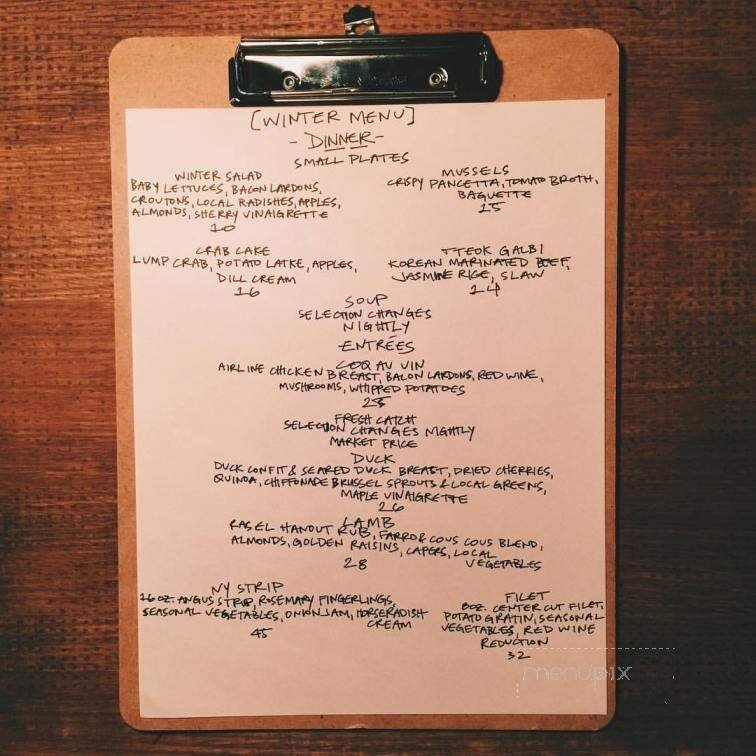 [WINTER MENU]
- DINNER -
SMALL PLATES
WINTER SALAD
BABY LETTUCES, BACON LARDONS,
CROUTONS, LOCAL RADISHES, APPLES,
ALMONDS, SHERRY VINAIGRETTE
10
MUSSELS
CRISPY PANCETTA, TOMATO BROTH,
BAGUETTE
15
CRAB CAKE
LUMP CRAB, POTATO LATKE, APPLES,
DILL CREAM
16
TTEOK GALBI
KOREAN MARINATED BEEF,
JASMINE RICE, SLAW
14
SOUP
SELECTION CHANGES
NIGHTLY
ENTRÉES
COQ AU VIN
AIRLINE CHICKEN BREAST, BACON LARDONS, RED WINE,
MUSHROOMS, WHIPPED POTATOES
25
FRESH CATCH
SELECTION CHANGES NIGHTLY
MARKET PRICE
DUCK
DUCK CONFIT & SEARED DUCK BREAST, DRIED CHERRIES,
QUINOA, CHIFFONADE BRUSSEL SPROUTS & LOCAL GREENS,
MAPLE VINAIGRETTE
26
LAMB
RAS EL HANOUT RUB, FARRO & COUS COUS BLEND,
ALMONDS, GOLDEN RAISINS, CAPERS, LOCAL
VEGETABLES
28
NY STRIP
16 OZ. ANGUS STRIP, ROSEMARY FINGERLINGS,
SEASONAL VEGETABLES, ONION JAM, HORSERADISH
CREAM
45
FILET
8OZ. CENTER CUT FILET,
POTATO GRATIN, SEASONAL
VEGETABLES, RED WINE
REDUCTION
32
menupix